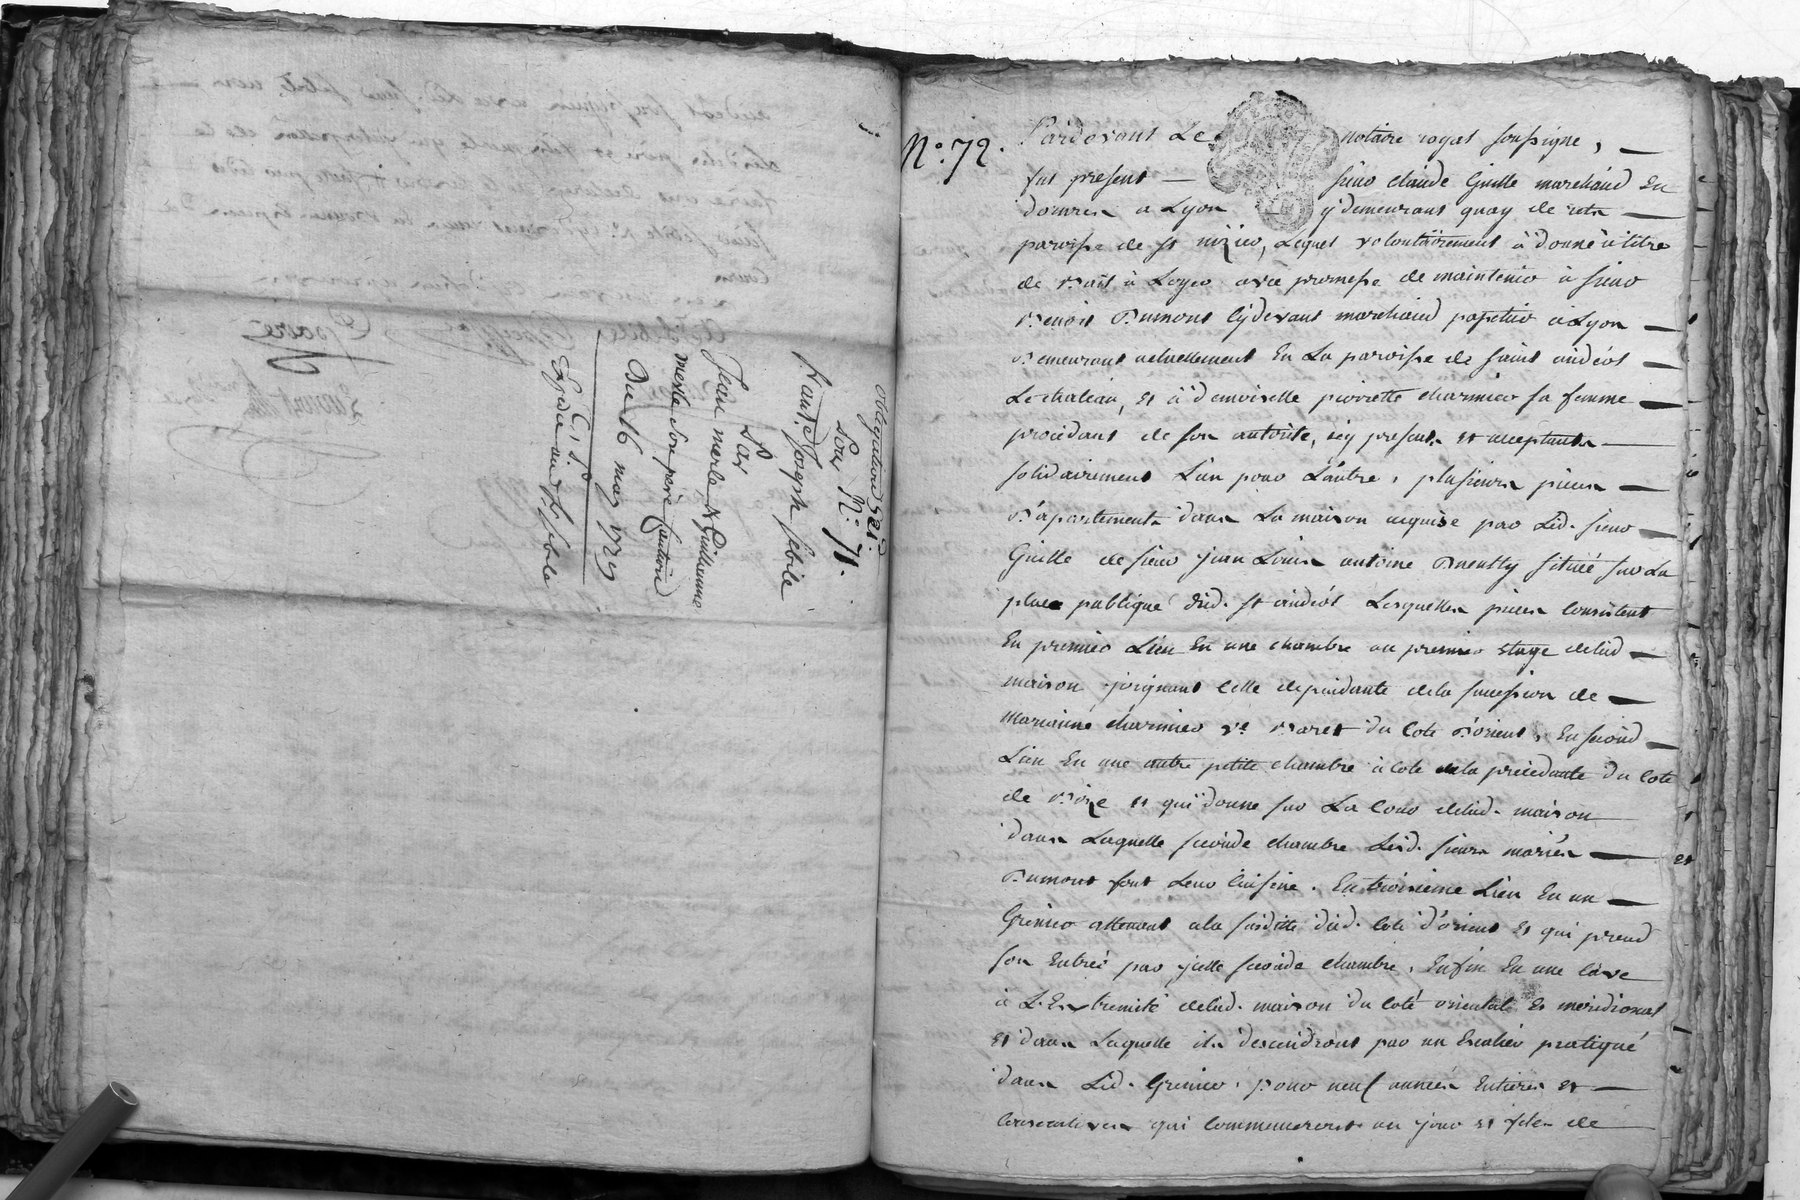 obligation 521.
Pour N.° 71.
hante Joseph sibile
Par
Jean merle & Guillaume
merle son pere Caution
Du 16 may 1729
Expedie aud. Sr. sibile
N.° 72.
Pardevant Le notaire royal soussigne,
fut present sieur claude Guille marchand En
à Lyon y demeurant quay de retz
paroisse de st nizier, Lequel volontairement à donné à titre
de Bail à Loyer avec promesse de maintenir à sieur
Benoit Dumont cy devant marchand papetier à Lyon
Demeurant actuellement En La paroisse de saint andéol
Le chateau, et à demoiselle pierrette charmier sa femme
procedant de son autorité, icy presents et acceptants
solidairement L'un pour L'autre, plusieurs pieces
D'apartements dans La maison acquise par Led. sieur
Guille de sieur jean Louis antoine situéé sur La
place publique dud. st andéol Lesquelles pieces Consistent
En premier Lieu En une chambre au premier etage delad.
maison joignant Celle dependante dela succession de
Marianne charmier ve. du Coté D'orient, En second
Lieu En une autre petite chambre à Coté dela précédante du Coté
de Bize et qui donne sur La Cour delad. maison
dans Laquelle seconde chambre Lesd. sieurs mariés
Dumont font Leur Cuisine. En troisieme Lieu En un
Grenier attenant ala susditte dud. Coté d'orient Et qui prend
son Entréé par jcelle seconde chambre, Enfin En une Cave
à L'Extremité delad. maison du Coté oriental Et meridional
Et dans Laquelle ils descendront par un Escalier pratiqué
dans Led. Grenier, pour neuf années Entieres et
Consecutives qui Commenceront au jour et fête de